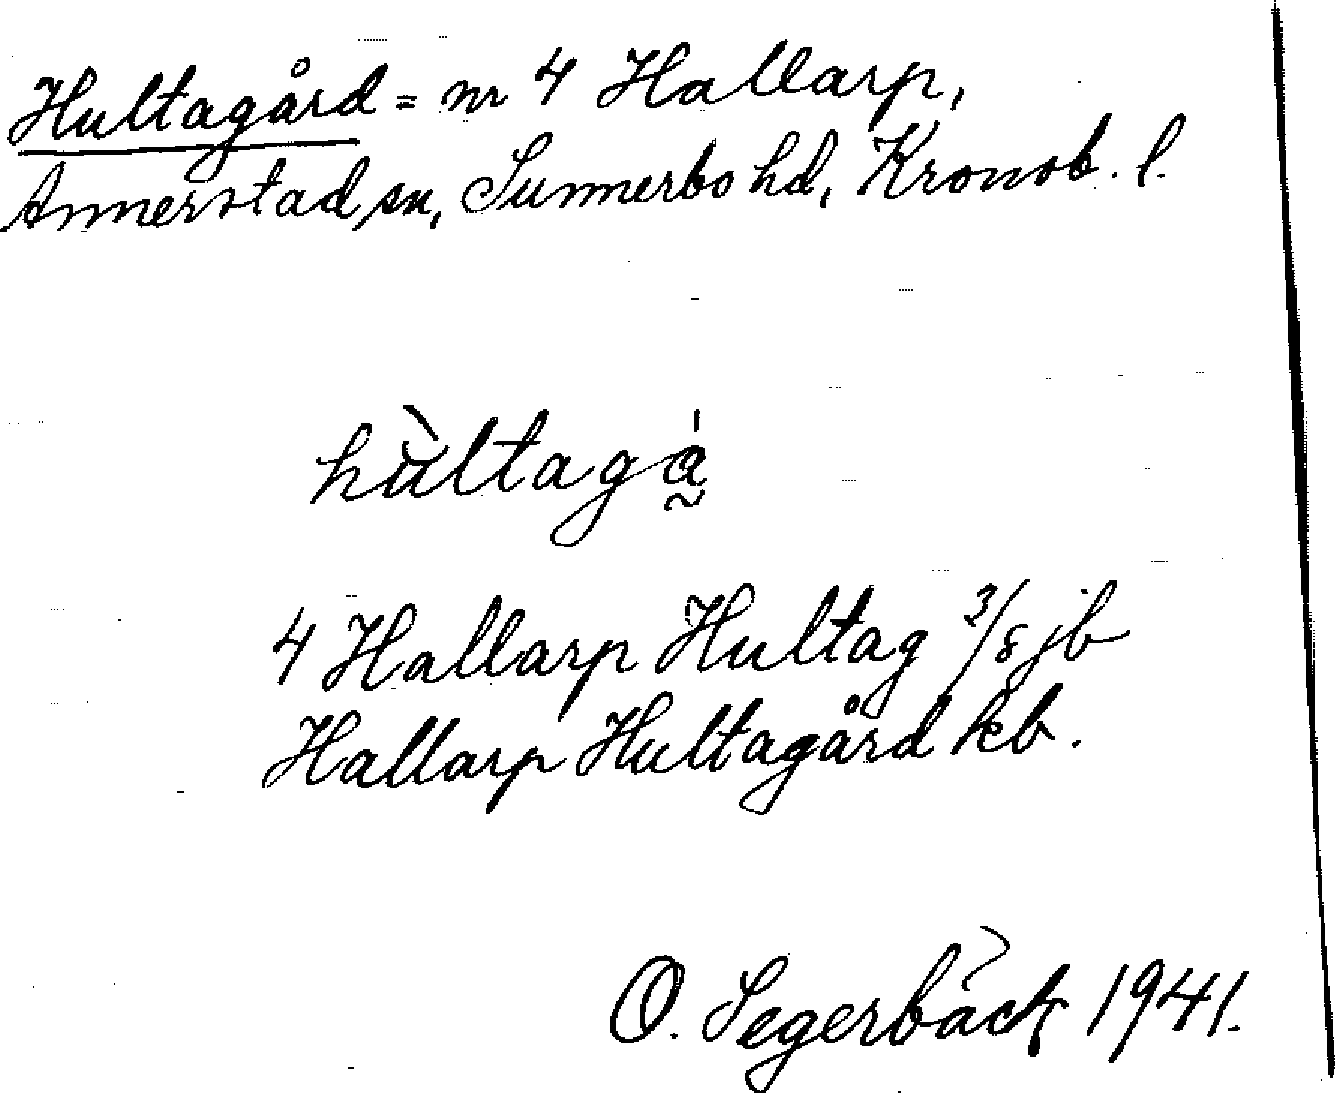 Hultagård = nr 4 Hallarp,
Annerstad sn, Sunnerbo hd, Kronob. l.
hùltagá̰
4 Hallarp Hultag 3/8 jb
Hallarp Hultagård kb.
O. Segerbäck 1941.